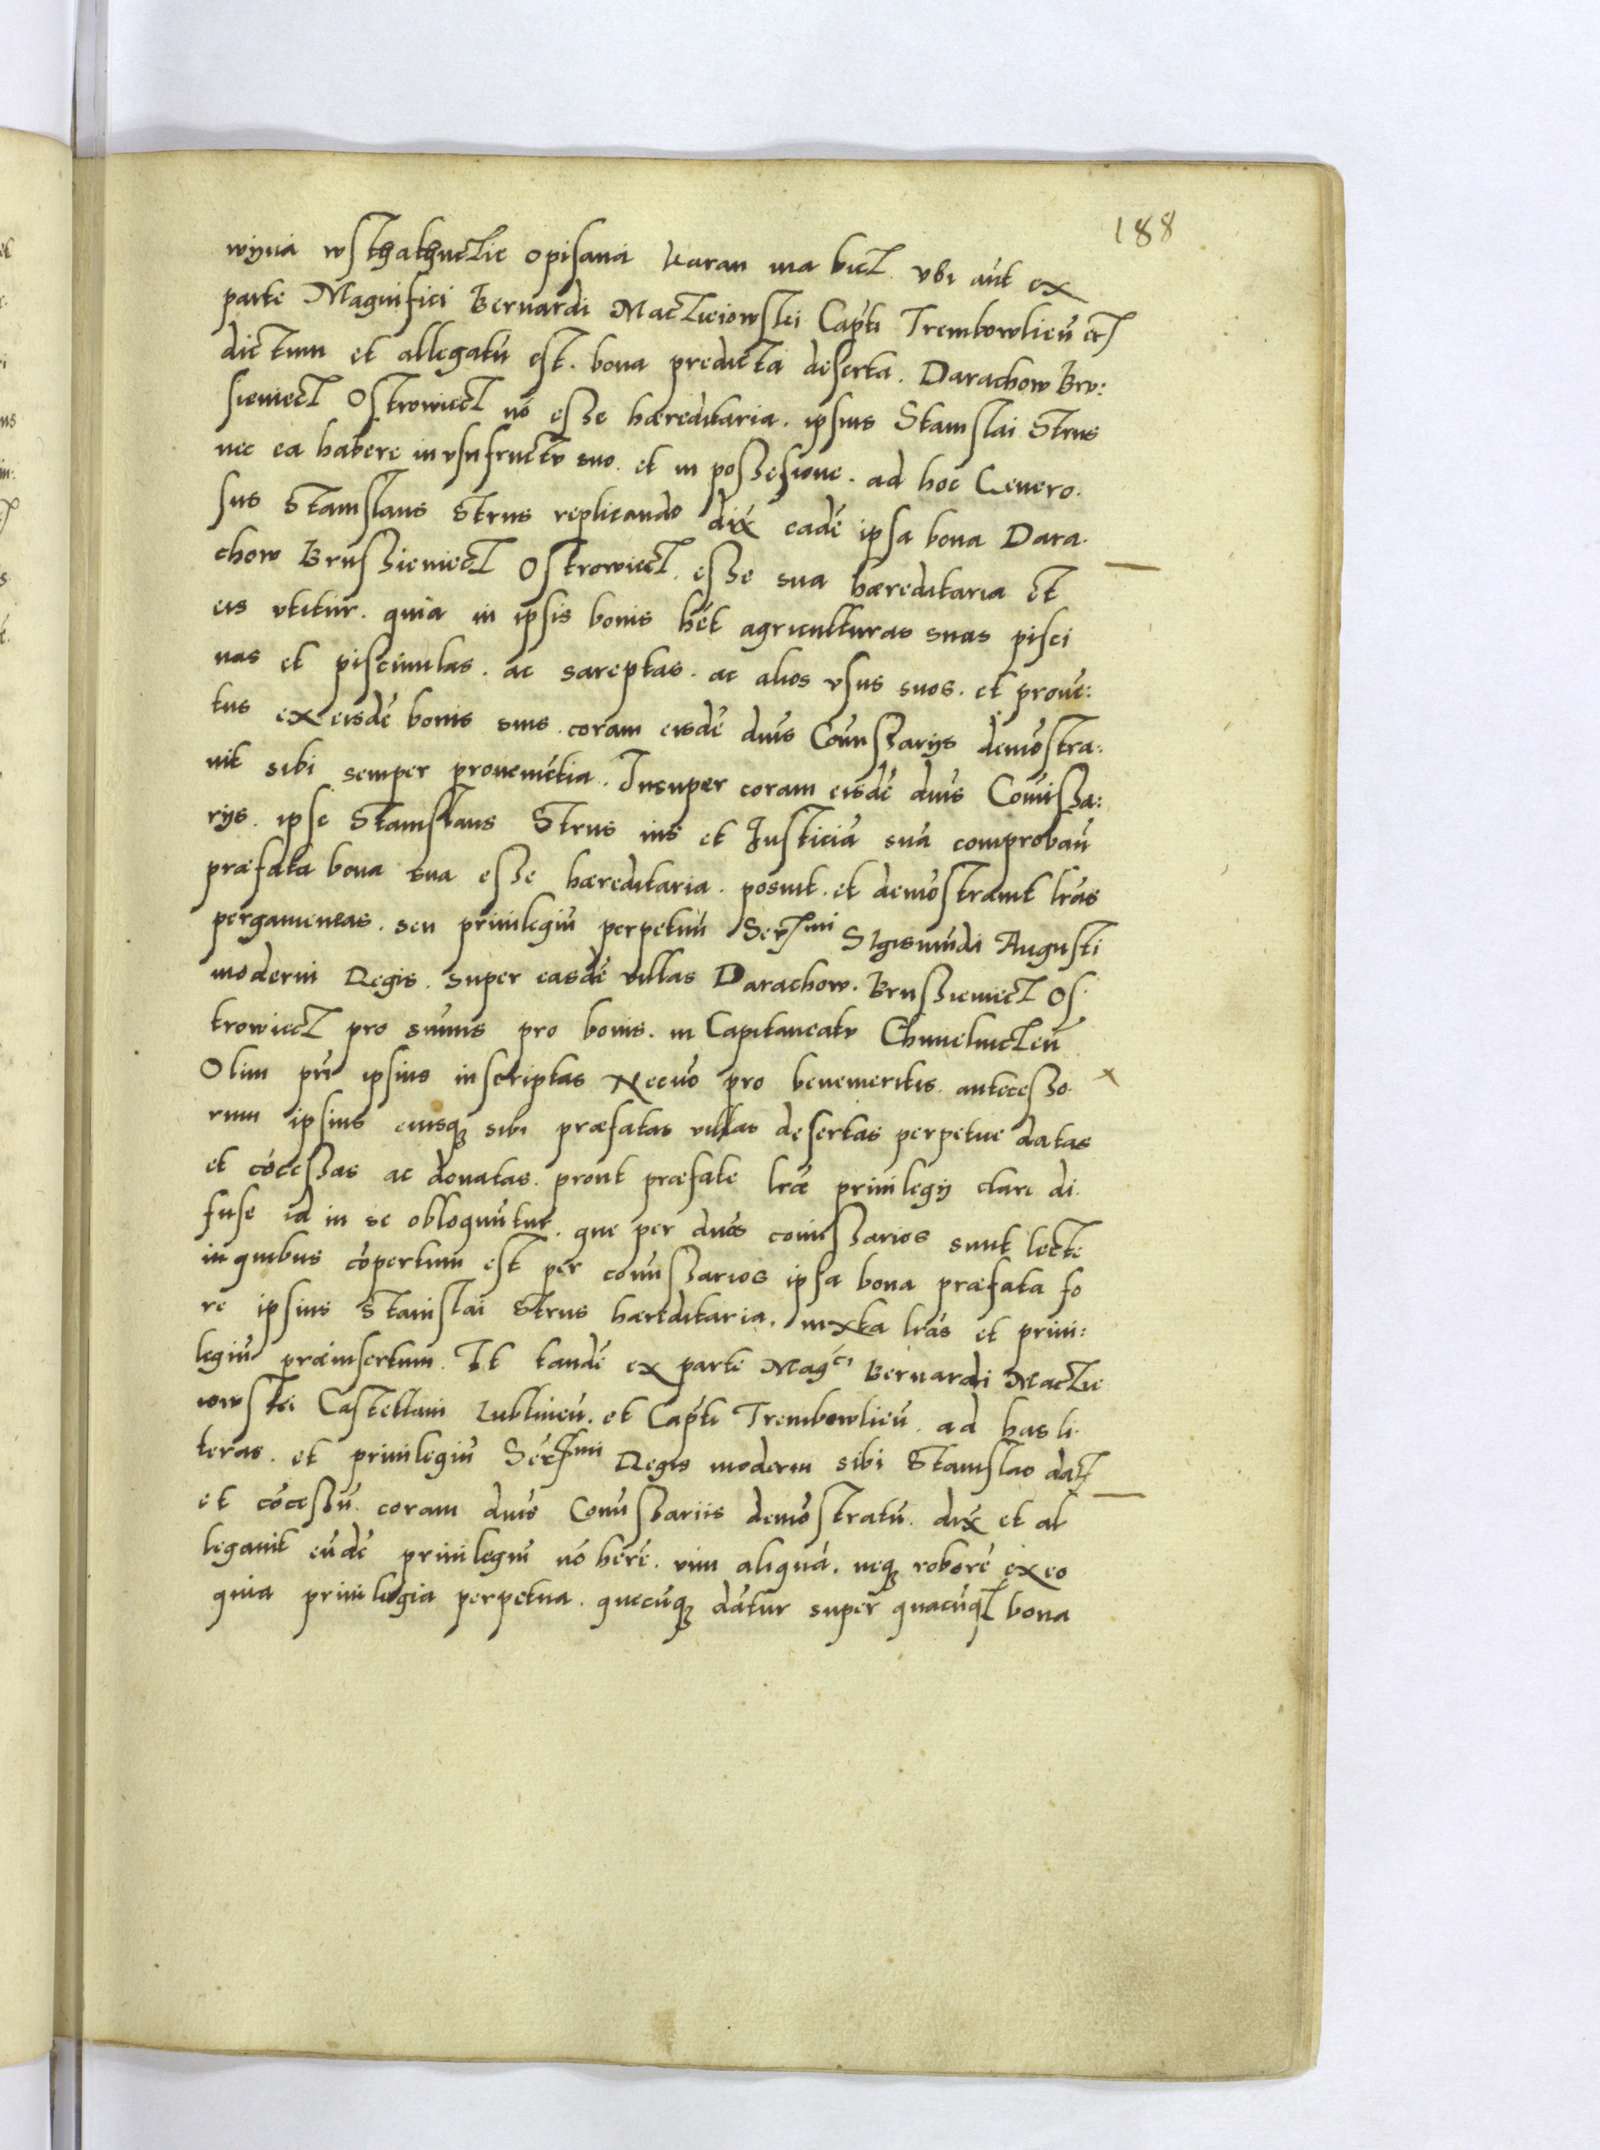 188
wyna wsthathuczie opisana karan ma bicz. vbi aut ex
parte Magnifici Bernardi Maczieiowski Capti Trembowlien etc
dictum et allegatū est. bona predicta deserta. Darachow Bru:
sieniecz Ostrowiecz nō esse hæreditaria. ipsius Stanislai Strus
nec ea habere in vsufructu suo. et in possesione. ad hoc Genero.
sus Stanislaus Strus replicando dix eadē ipsa bona Dara.
chow Brussieniecz Ostrowiecz. esse sua hæreditaria et
eis vtitur. quia in ipsis bonis hēt agriculturas suas pisci
nas et piscinulas. ac sareptas. ac alios vsus suos. et prouē:
tus ex eisdē bonis suis. coram eisdē dnis Comissarijs demōstra:
uit sibi semper prouenietia. Insuper coram eisdē dnis Comissa:
rijs. ipse Stanislaus Strus ius et Justiciā suā comprobaū
præfata bona sua esse hæreditaria. posuit. et demōstrauit lrās
pergameneas. seu priuilegiū perpetuū Serssmi Sigismūdi Augusti
moderni Regis. super easdē villas Darachow. Brussieniecz Os.
trowiecz pro sumis pro bonis. in Capitaneatu Chmelniczeñ
Olim pri ipsius inscriptas Necnō pro benemeritis. antecesso.
rum ipsius eiusq; sibi præfatas villas desertas perpetue datas
et cōcessas ac donatas. prout præfate lræ priuilegij clare di.
fuse id in se obloquūtur. que per dnos comissarios sunt lecte
in quibus cōpertum est per comissarios ipsa bona præfata fo
re ipsius Stanislai Strus hæreditaria. iuxta lrās et priui:
legiū præinsertum. Et tandē ex parte Magci Bernardi Maczie
iowski Castellani Lublineñ. et Capti Trembowlieñ. ad has li.
teras. et priuilegiū Serssmi Regis moderni sibi Stanislao dat
et cōcessū. coram dnis Comissariis demōstratū. dix et al
legauit eūdē priuilegiū nō hērē. vim aliquā. neq; roborē ex eo
quia priuilegia perpetua. quecūq; dātur super quacūq; bona